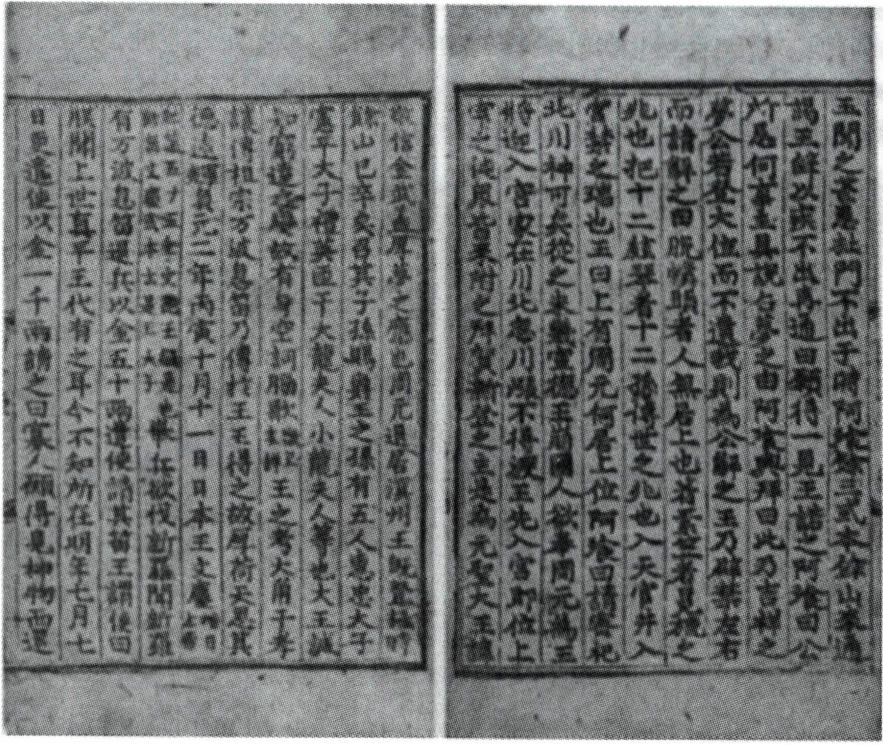 王聞之甚患杜門不出于時阿飡餘三或本餘山來通
謁王辭以疾不出再通曰願得一見王諾之阿飡曰公
所忌何事王具說占夢之由阿飡興拜曰此乃吉祥之
夢公若登大位而不遺我則為公解之王乃辟禁左右
而請解之曰脫幞頭者人無居上也著素笠者冕旒之
兆也把十二絃琴者十二孫傳世之兆也入天官井入
宮禁之瑞也王曰上有周元何居上位阿飡曰請密祀
北川神可矣從之未幾宣德王崩國人欲奉周元為王
將迎入宮家在川北忽川漲不得渡王先入宮即位上
宰之徒眾皆來附之拜賀新登之主是為元聖大王諱
敬信金武盖厚夢之應也周元退居溟州王既登極時
餘山已卒矣召其子孫賜爵王之孫有五人惠忠大子
憲平大子禮英匝干大龍夫人小龍夫人等也大王誠
知窮達之變故有身空詞腦歌歌亡未詳王之考大角干孝
讓傳祖宗万波息笛乃傳於王王得之故厚荷天恩其
德遠輝貞元二年丙寅十月十一日日本王文慶按日本帝
紀第五十五主文德王疑是也餘無文慶或本云是王大子舉兵欲伐新羅聞新羅
有万波息笛退兵以金五十兩遣使請其笛王謂使曰
朕聞上世真平王代有之耳今不知所在明年七月七
日更遣使以金一千兩請之曰寡人願得見神物而還